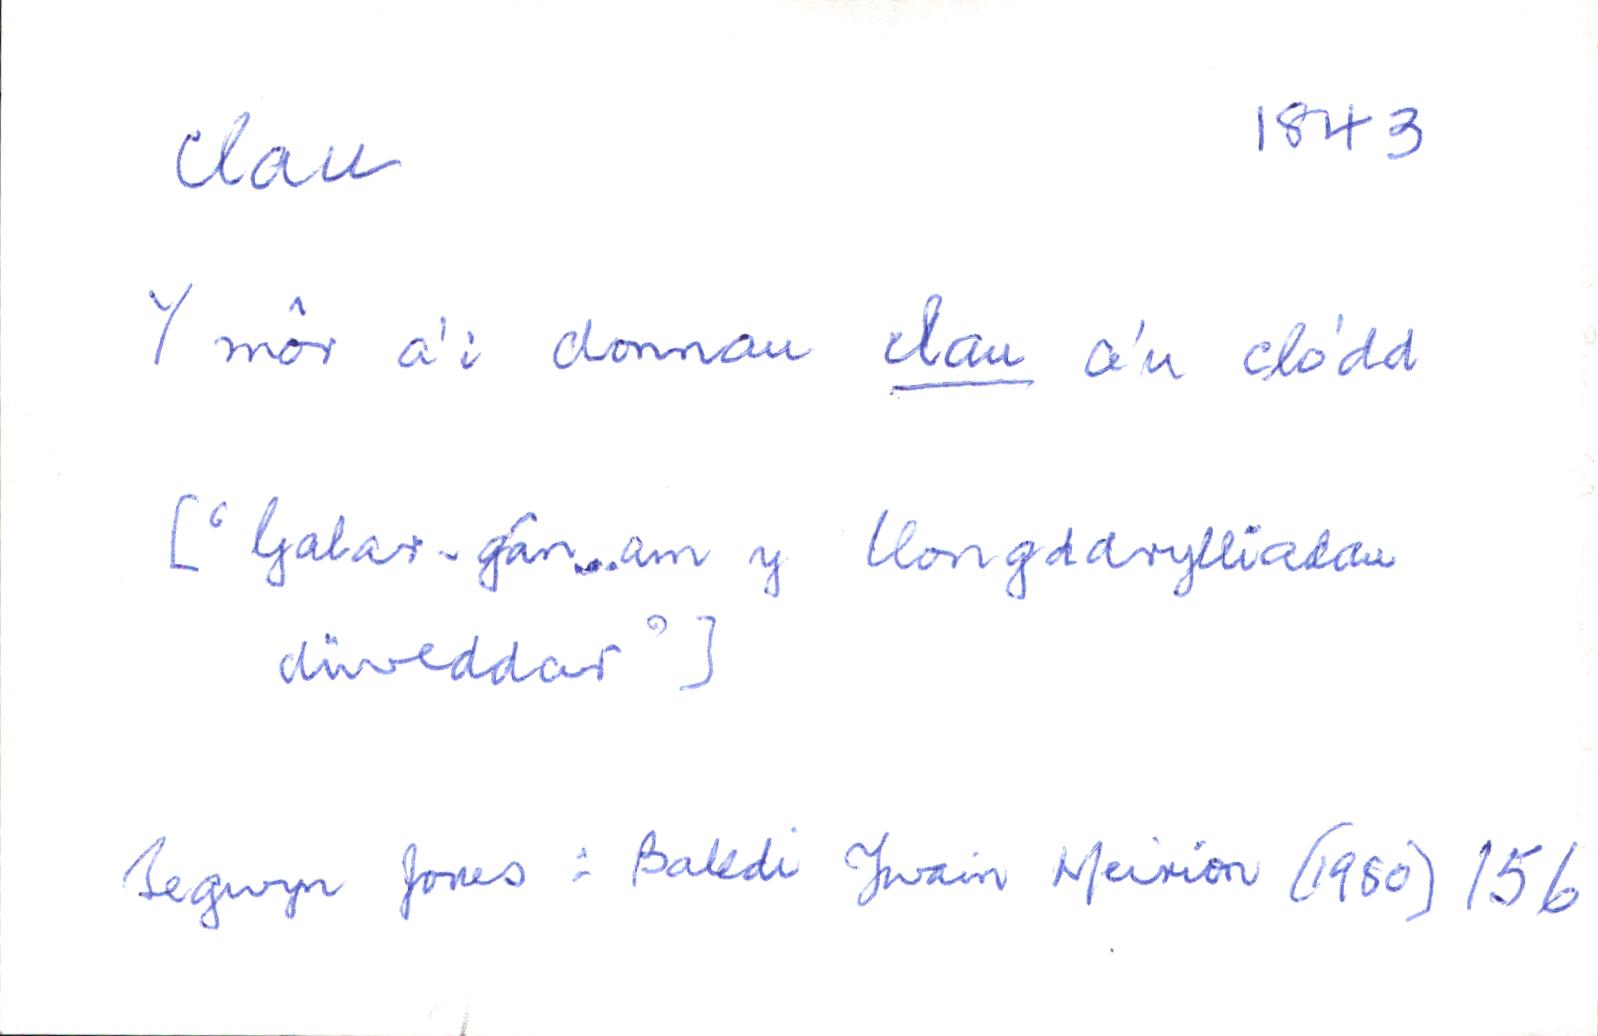 clau 1843
Y môr a'i donnau clau a'u clo'dd
[‘Galar-gân...am y llongddrylliadau
diweddar’]
Tegwyn Jones : Baledi Ywain Meirion (1980) 156